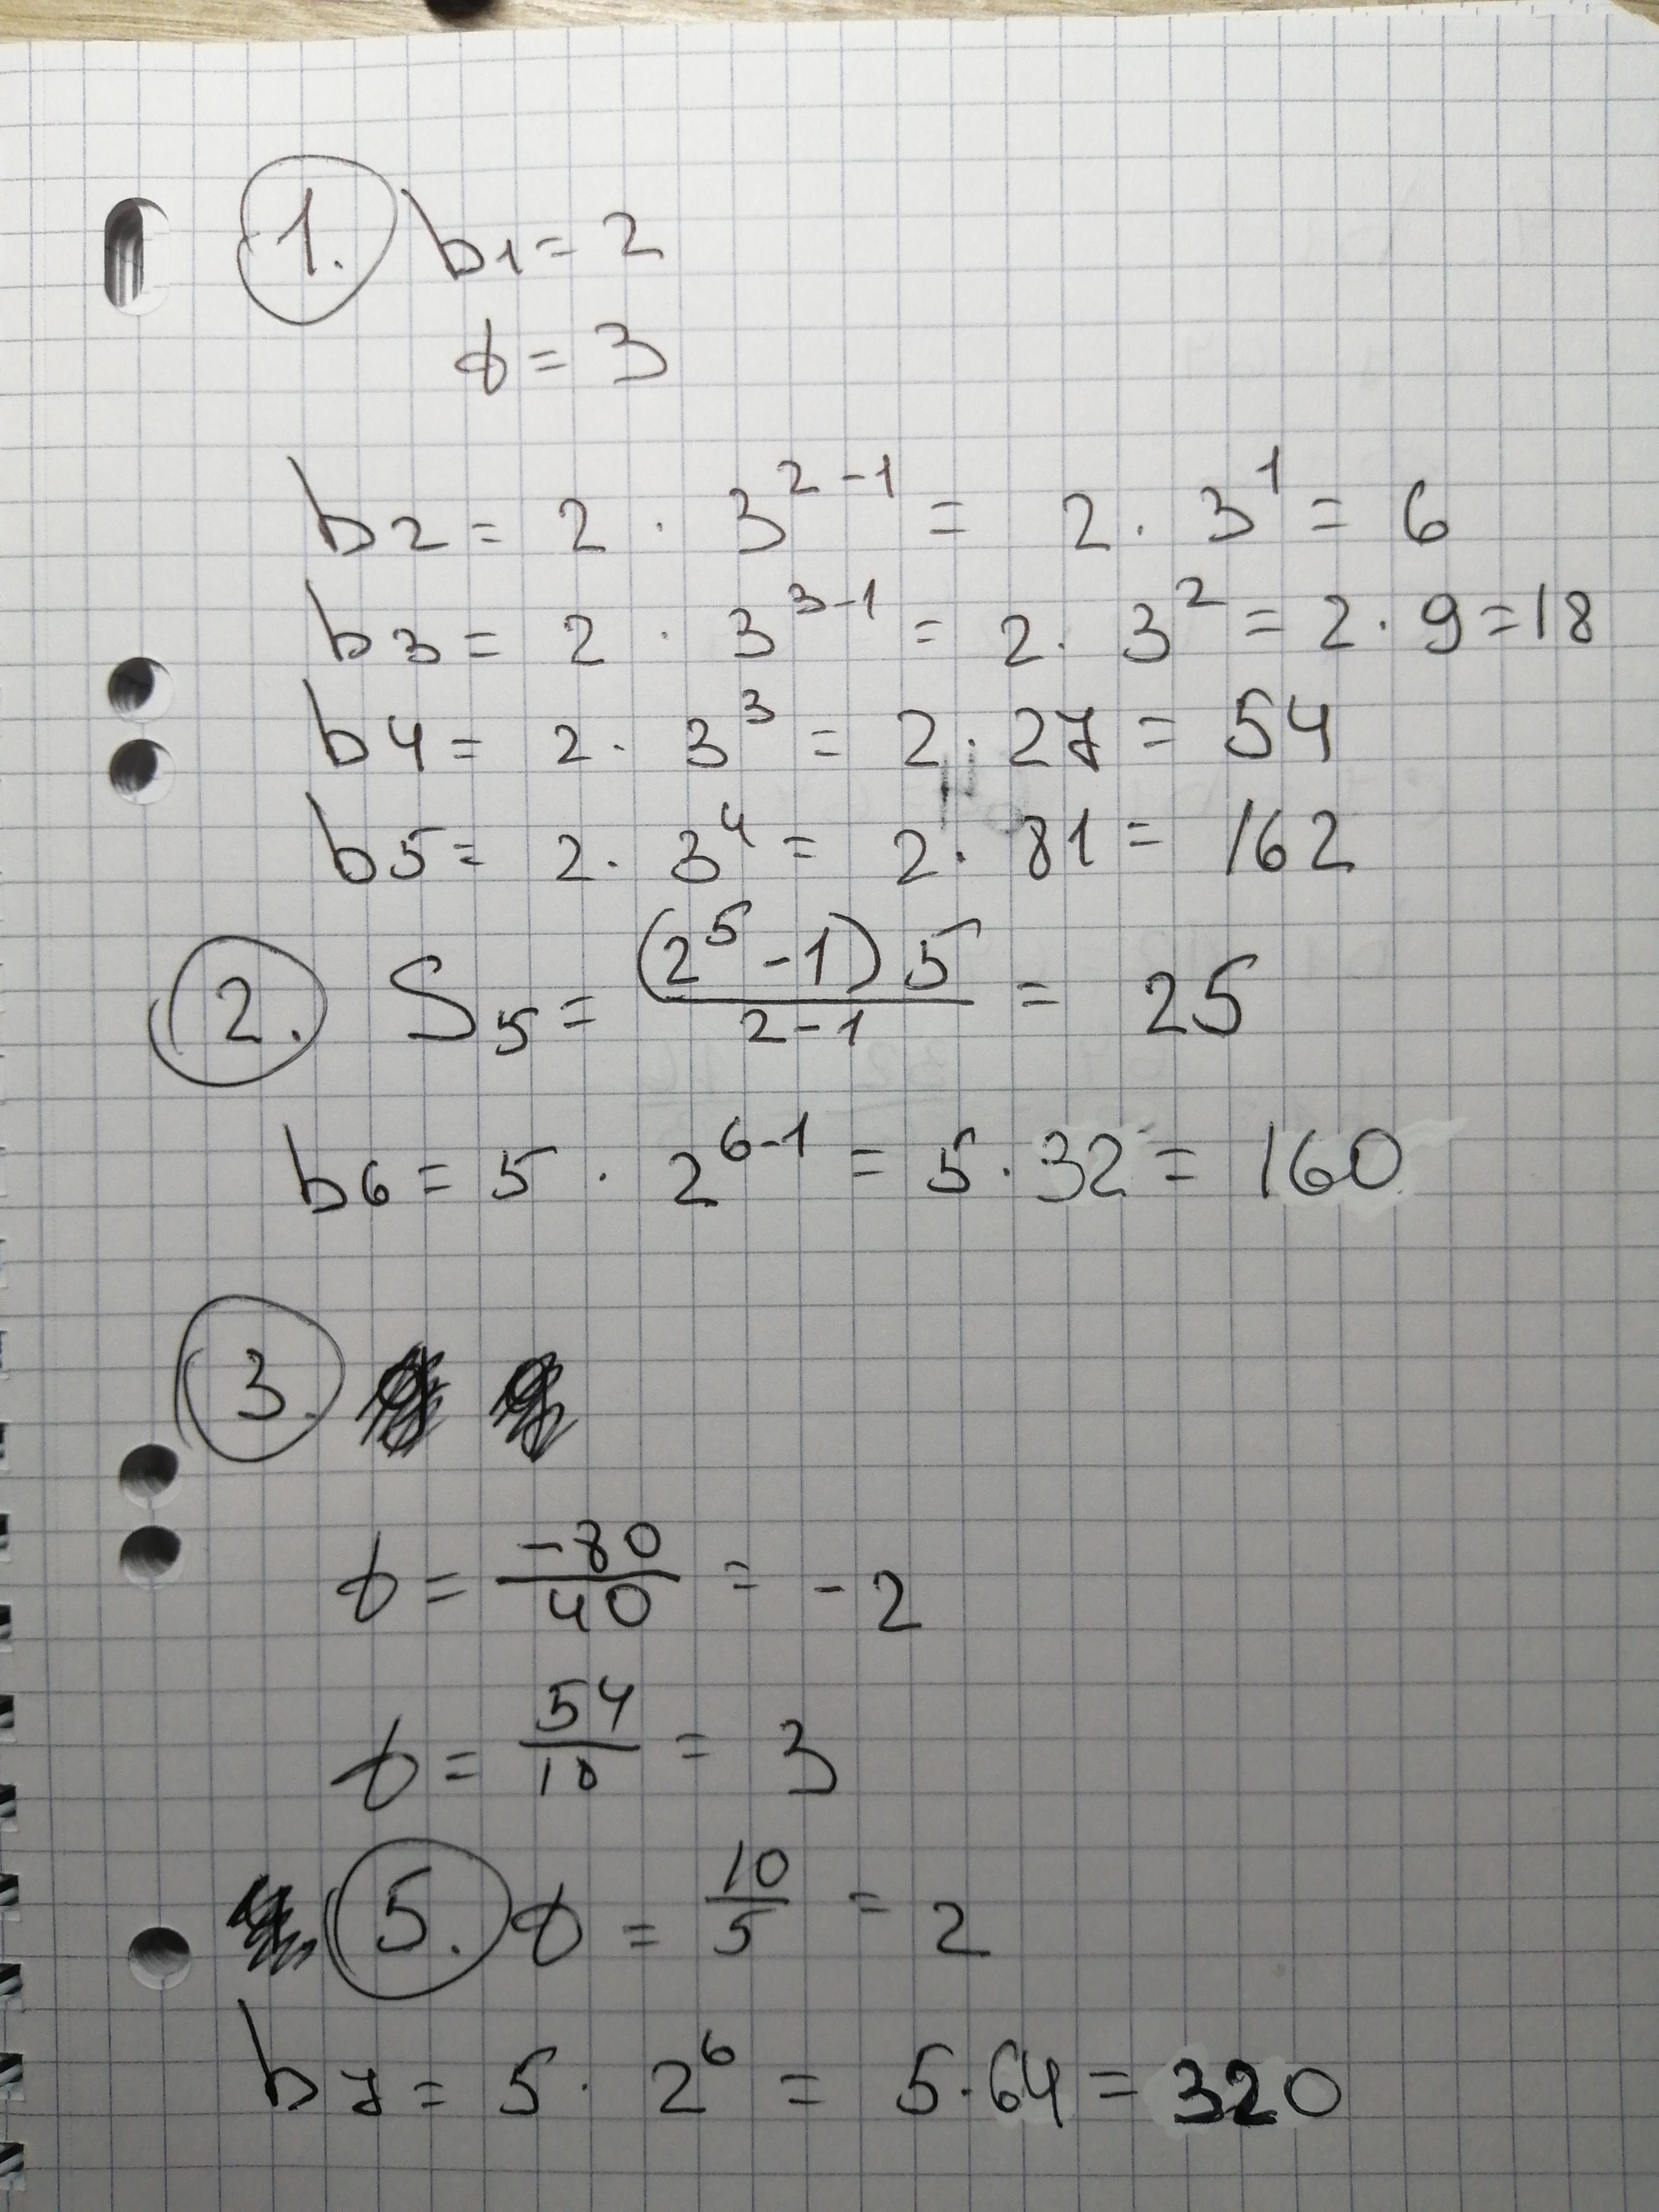 1. b1 = 2
q = 3
b2 = 2 · 3^2-1 = 2 · 3^1 = 6
b3 = 2 · 3^3-1 = 2 · 3^2 = 2 · 9 = 18
b4 = 2 · 3^3 = 2 · 27 = 54
b5 = 2 · 3^4 = 2 · 81 = 162
2. S5 = (2^5 - 1) 5 / 2 - 1 = 25
b6 = 5 · 2^6-1 = 5 · 32 = 160
3.
q = -80 / 40 = -2
q = 54 / 18 = 3
5. q = 10 / 5 = 2
b7 = 5 · 2^6 = 5 · 64 = 320